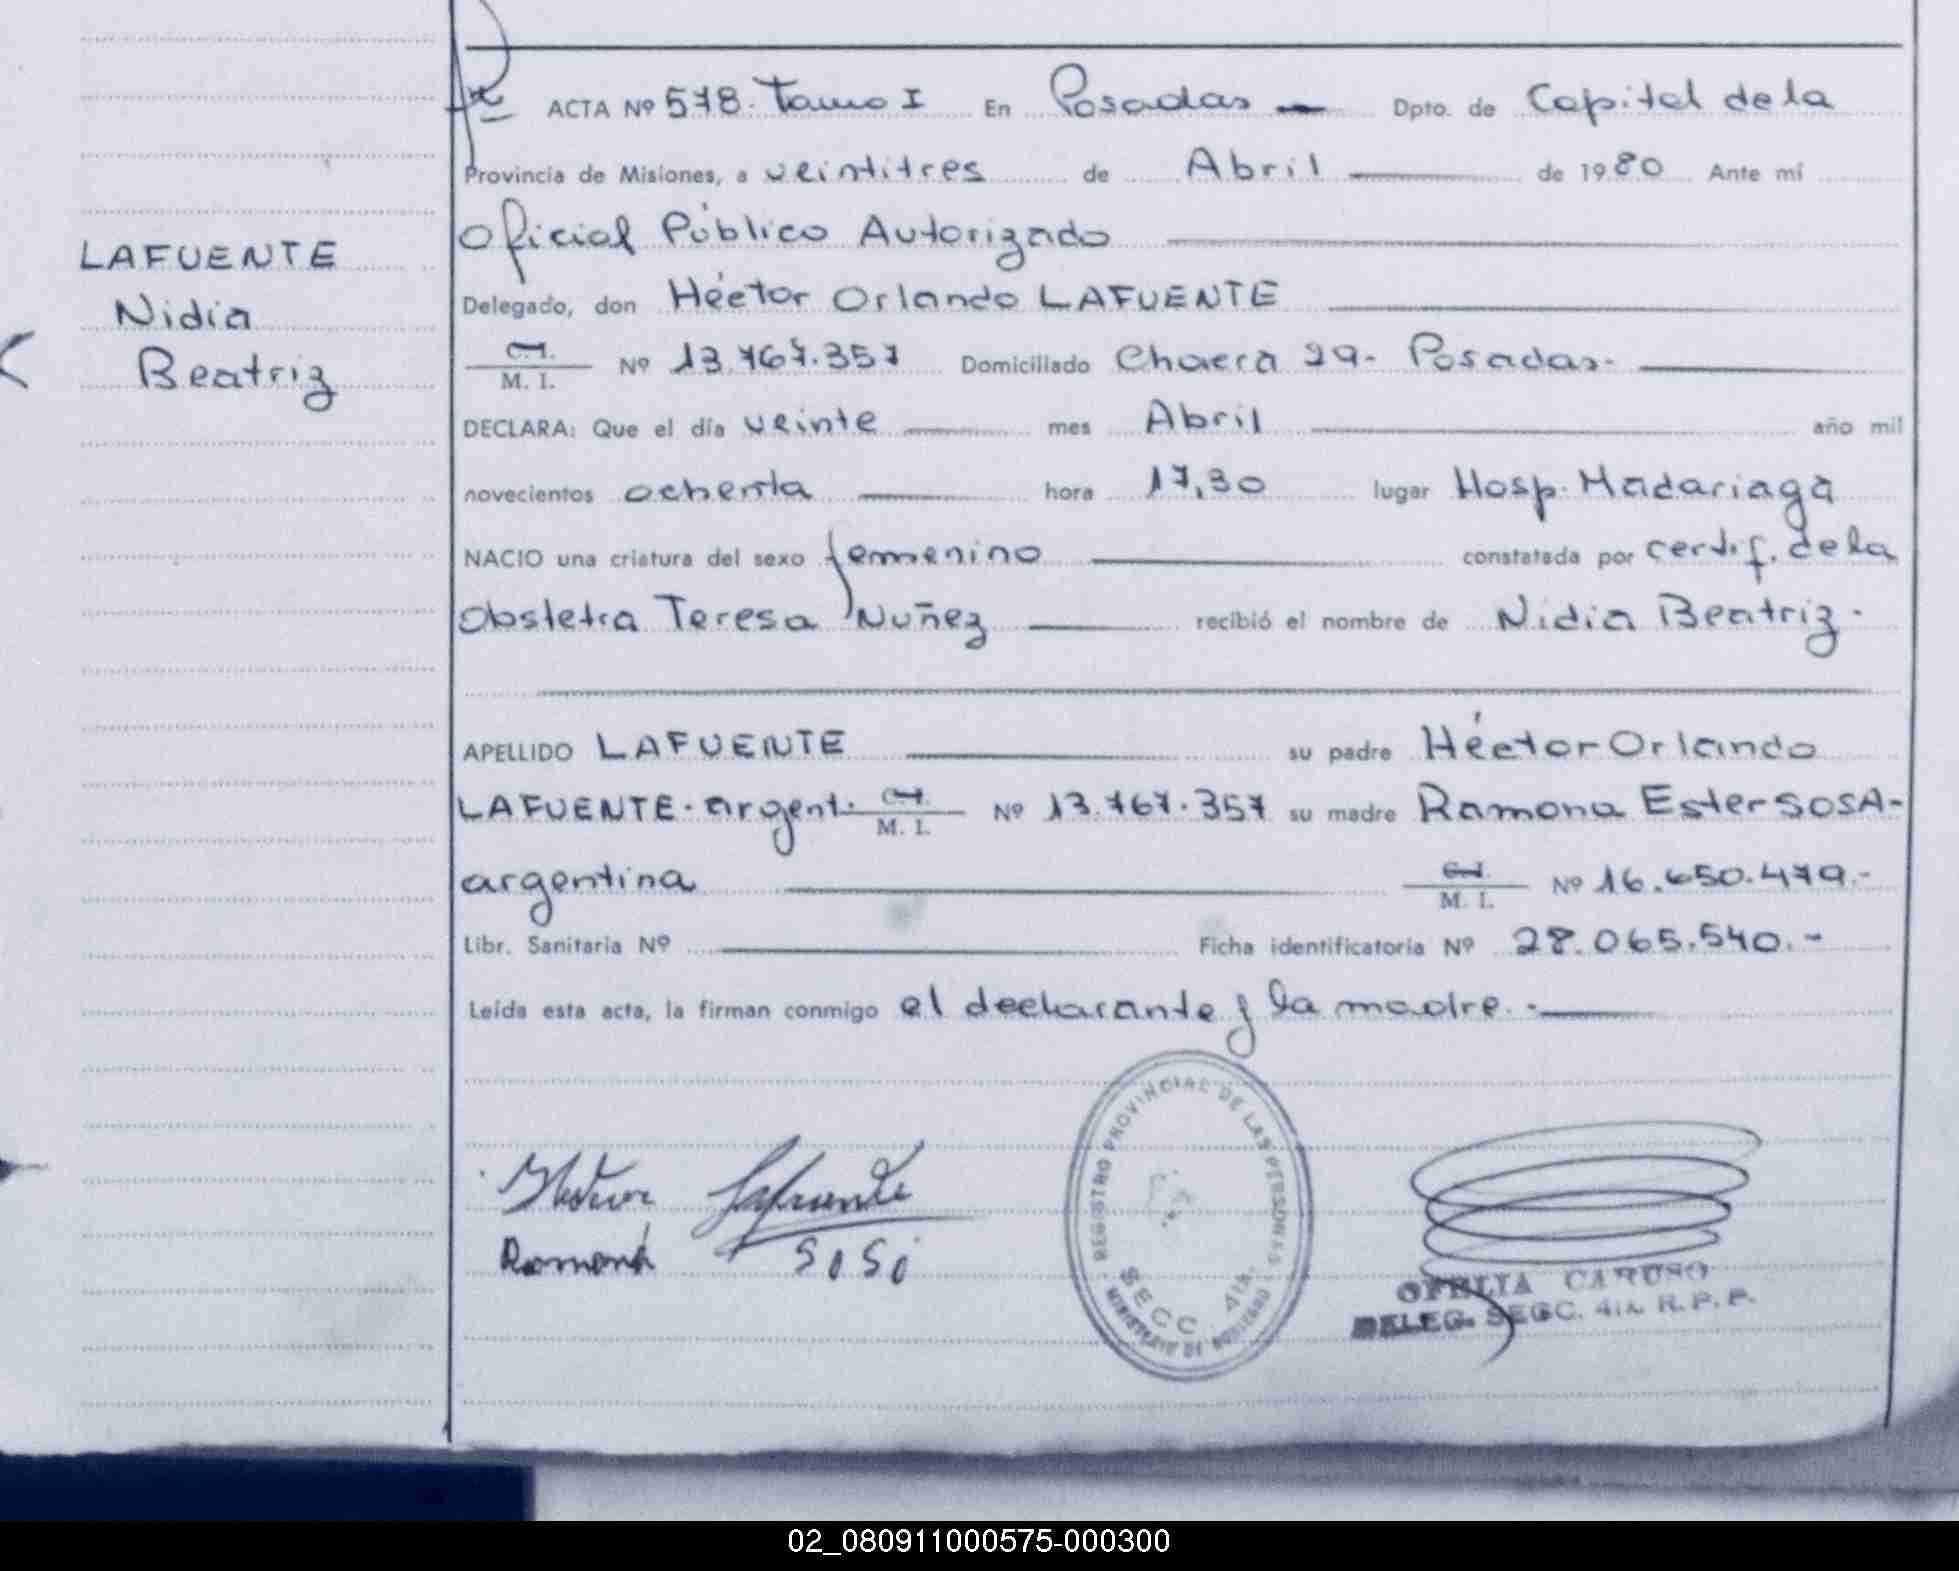 ACTA Nº 578. Tomo I En Posadas Dpto. de Capital de la
Provincia de Misiones, a veintitres de Abril de 1980 Ante mí
Oficial Público Autorizado
LAFUENTE
Nidia
Beatriz
Delegado, don Héctor Orlando LAFUENTE
C.I.
M. I. Nº 13.767.357 Domiciliado Chacra 29- Posadas-
DECLARA: Que el día veinte mes Abril año mil
novecientos ochenta hora 17,30 lugar Hosp. Madariaga
NACIO una criatura del sexo femenino constatada por certif. de la
Obstetra Teresa Nuñez recibió el nombre de Nidia Beatriz.
APELLIDO LAFUENTE su padre Héctor Orlando
LAFUENTE. argent. C.I. M. I. Nº 13.767.357 su madre Ramona Ester SOSA-
argentina C.I. M. I. Nº 16.650.479.-
Libr. Sanitaria Nº Ficha identificatoria Nº 28.065.540.-
Leída esta acta, la firman conmigo el declarante y la madre.-
Hector Lafuente
Ramona Sosa
REGISTRO PROVINCIAL DE LAS PERSONAS
SECC 4ta.
MINISTERIO DE GOBIERNO
OFELIA CARUSO
DELEG. SECC. 4ta. R. P. P.
02_080911000575-000300